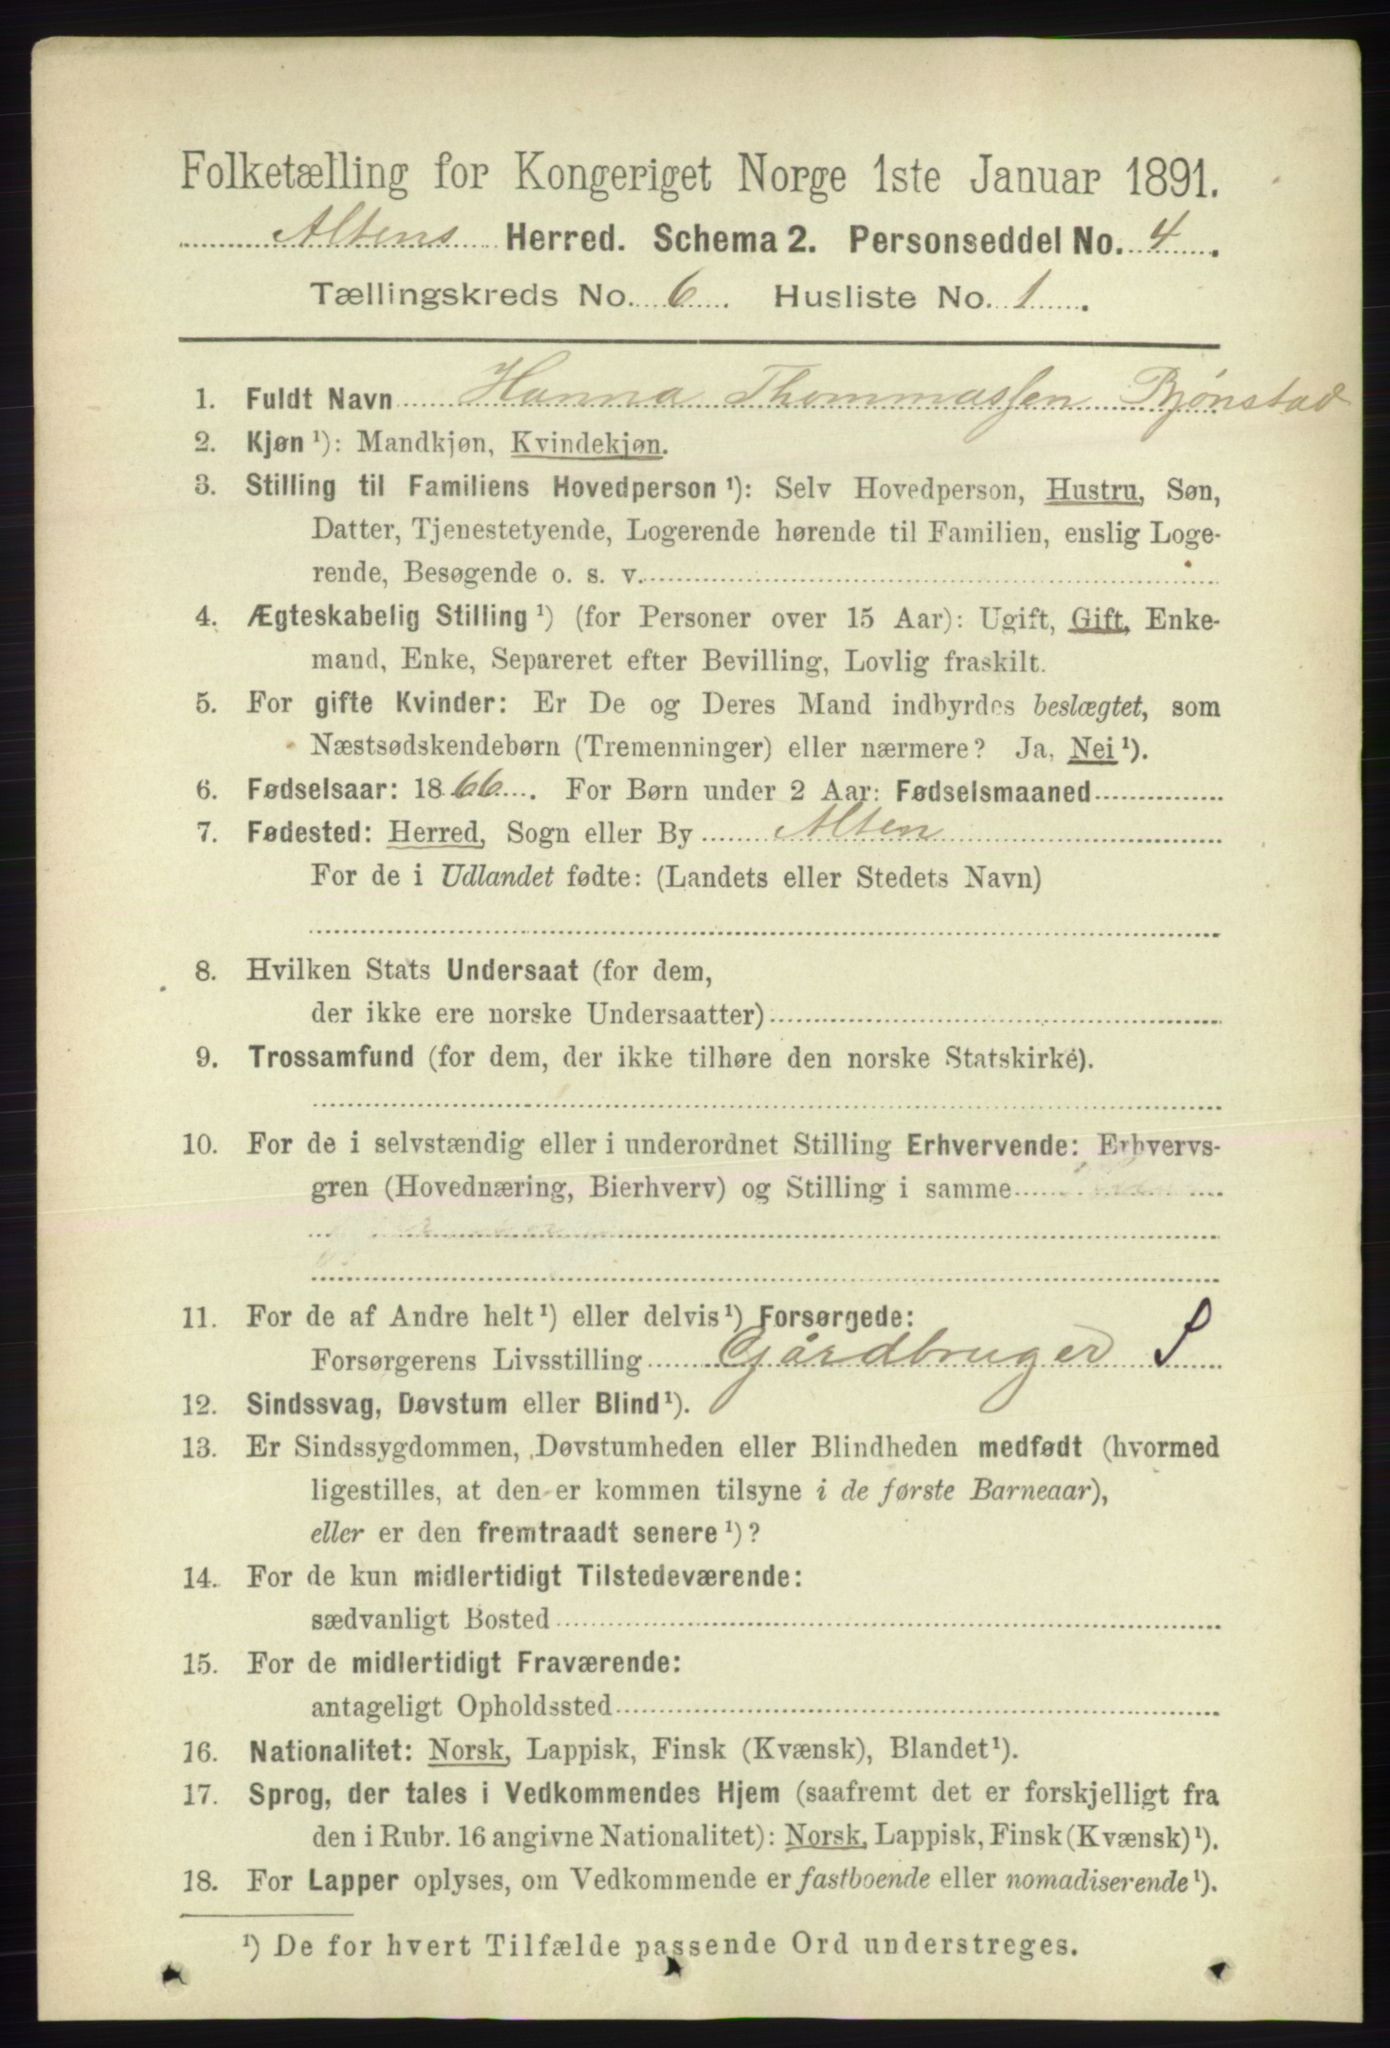 Folketælling for Kongeriget Norge 1ste Januar 1891.
Altens Herred. Schema 2. Personseddel No. 4.
Tællingskreds No. 6. Husliste No. 1.
1. Fuldt Navn Hanna Thommassen Bjønstad
2. Kjøn ¹): Mandkjøn, Kvindekjøn.
3. Stilling til Familiens Hovedperson ¹): Selv Hovedperson, Hustru, Søn,
Datter, Tjenestetyende, Logerende hørende til Familien, enslig Loge-
rende, Besøgende o. s. v.
4. Ægteskabelig Stilling ¹) (for Personer over 15 Aar): Ugift, Gift, Enke-
mand, Enke, Separeret efter Bevilling, Lovlig fraskilt.
5. For gifte Kvinder: Er De og Deres Mand indbyrdes beslægtet, som
Næstsødskendebørn (Tremenninger) eller nærmere? Ja, Nei ¹).
6. Fødselsaar: 1866. For Børn under 2 Aar: Fødselsmaaned
7. Fødested: Herred, Sogn eller By Alten
For de i Udlandet fødte: (Landets eller Stedets Navn)
8. Hvilken Stats Undersaat (for dem,
der ikke ere norske Undersaatter)
9. Trossamfund (for dem, der ikke tilhøre den norske Statskirke).
10. For de i selvstændig eller i underordnet Stilling Erhvervende: Erhvervs-
gren (Hovednæring, Bierhverv) og Stilling i samme
11. For de af Andre helt ¹) eller delvis ¹) Forsørgede:
Forsørgerens Livsstilling Gårdbruger S
12. Sindssvag, Døvstum eller Blind ¹).
13. Er Sindssygdommen, Døvstumheden eller Blindheden medfødt (hvormed
ligestilles, at den er kommen tilsyne i de første Barneaar),
eller er den fremtraadt senere ¹)?
14. For de kun midlertidigt Tilstedeværende:
sædvanligt Bosted
15. For de midlertidigt Fraværende:
antageligt Opholdssted
16. Nationalitet: Norsk, Lappisk, Finsk (Kvænsk), Blandet ¹).
17. Sprog, der tales i Vedkommendes Hjem (saafremt det er forskjelligt fra
den i Rubr. 16 angivne Nationalitet): Norsk, Lappisk, Finsk (Kvænsk) ¹).
18. For Lapper oplyses, om Vedkommende er fastboende eller nomadiserende ¹).
¹) De for hvert Tilfælde passende Ord understreges.